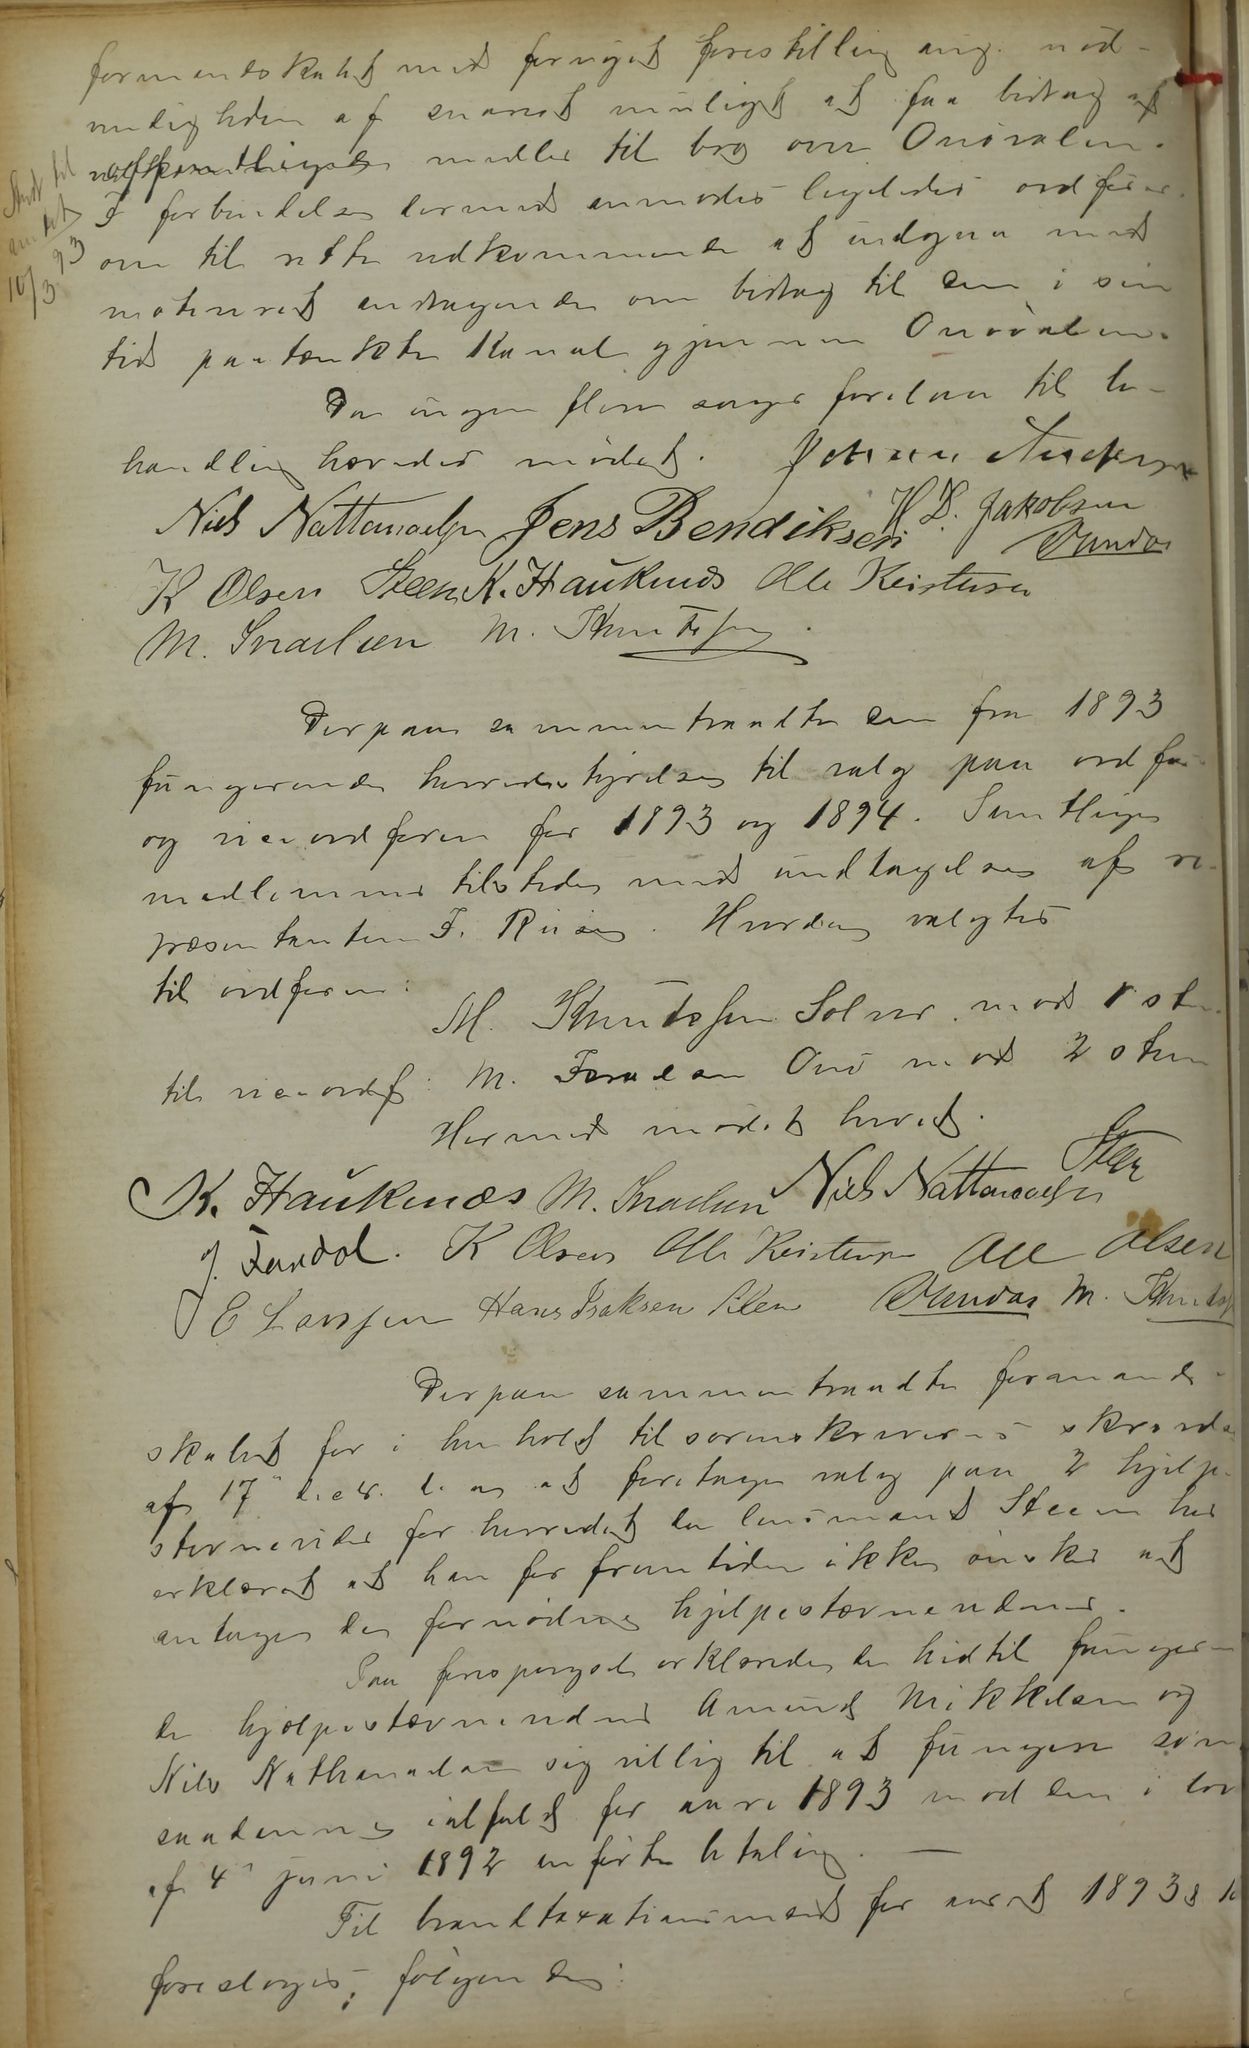 formandskabet med fornyet forestilling ang. nød-
vendigheden af snarest muligt at faa bidrag af
offentlige midler til bro over Onøvalen.
Sendt til
amtet
10/3 93
I forbindelse dermed anmodes ligeledes ordfører
om til rette vedkommende at indgaa med
motiveret andragende om bidrag til den i sin
tid paatænkte Kanal gjennem Onøvalen.
Da ingen flere sager forelaa til be-
handling hævedes mødet. Johan Andersen
Niels Nattanaelsen Jens Bendiksen H. D. Jakobsen
K Olsen Steen K. Haukenæs Ole Kristensen Dundas
M. Israelsen M. Knutssen.
Derpaa sammentraadte den fra 1893
fungerende herredsstyrelse til valg paa ordfører
og viceordfører for 1893 og 1894. Samtlige
medlemmer tilstede med undtagelse af re-
præsentanten F. Riise. Hvordan valgtes
til ordfører:
M. Knutssen Solvær med 1 st.
til viceordf: M. Israelsen Onø med 2 stem
Hermed mødet hævet.
K. Haukenæs M. Israelsen Niels Nattanaelsen Steen
J. Fordal. K Olsen Ole Kristensen Ole Olsen
E Larssen Hans Isaksen Dundas M. Knutss
Derpaa sammentraadte formands-
skabet for i henhold til sorenskriverens skrivelse
af 17de decbr. d. a. at foretage valg paa 2 hjelpe-
stevnevidner for herredet da lensmand Steen har
erklæret at han for fremtiden ikke ønsker at
antage de fornødne hjelpestævnevidner.
Paa forespørgsel erklærede de hidtil fungeren-
de hjælpestævnevidner Amund Mikkelsen og
Nils Nathanaelsen sig villig til at fungere som
saadanne ialfald for aaret 1893 mod den i lov
af 4de juni 1892 anførte betaling. —
Til brandtaxationsmænd for aaret 1893
foresloges følgende: